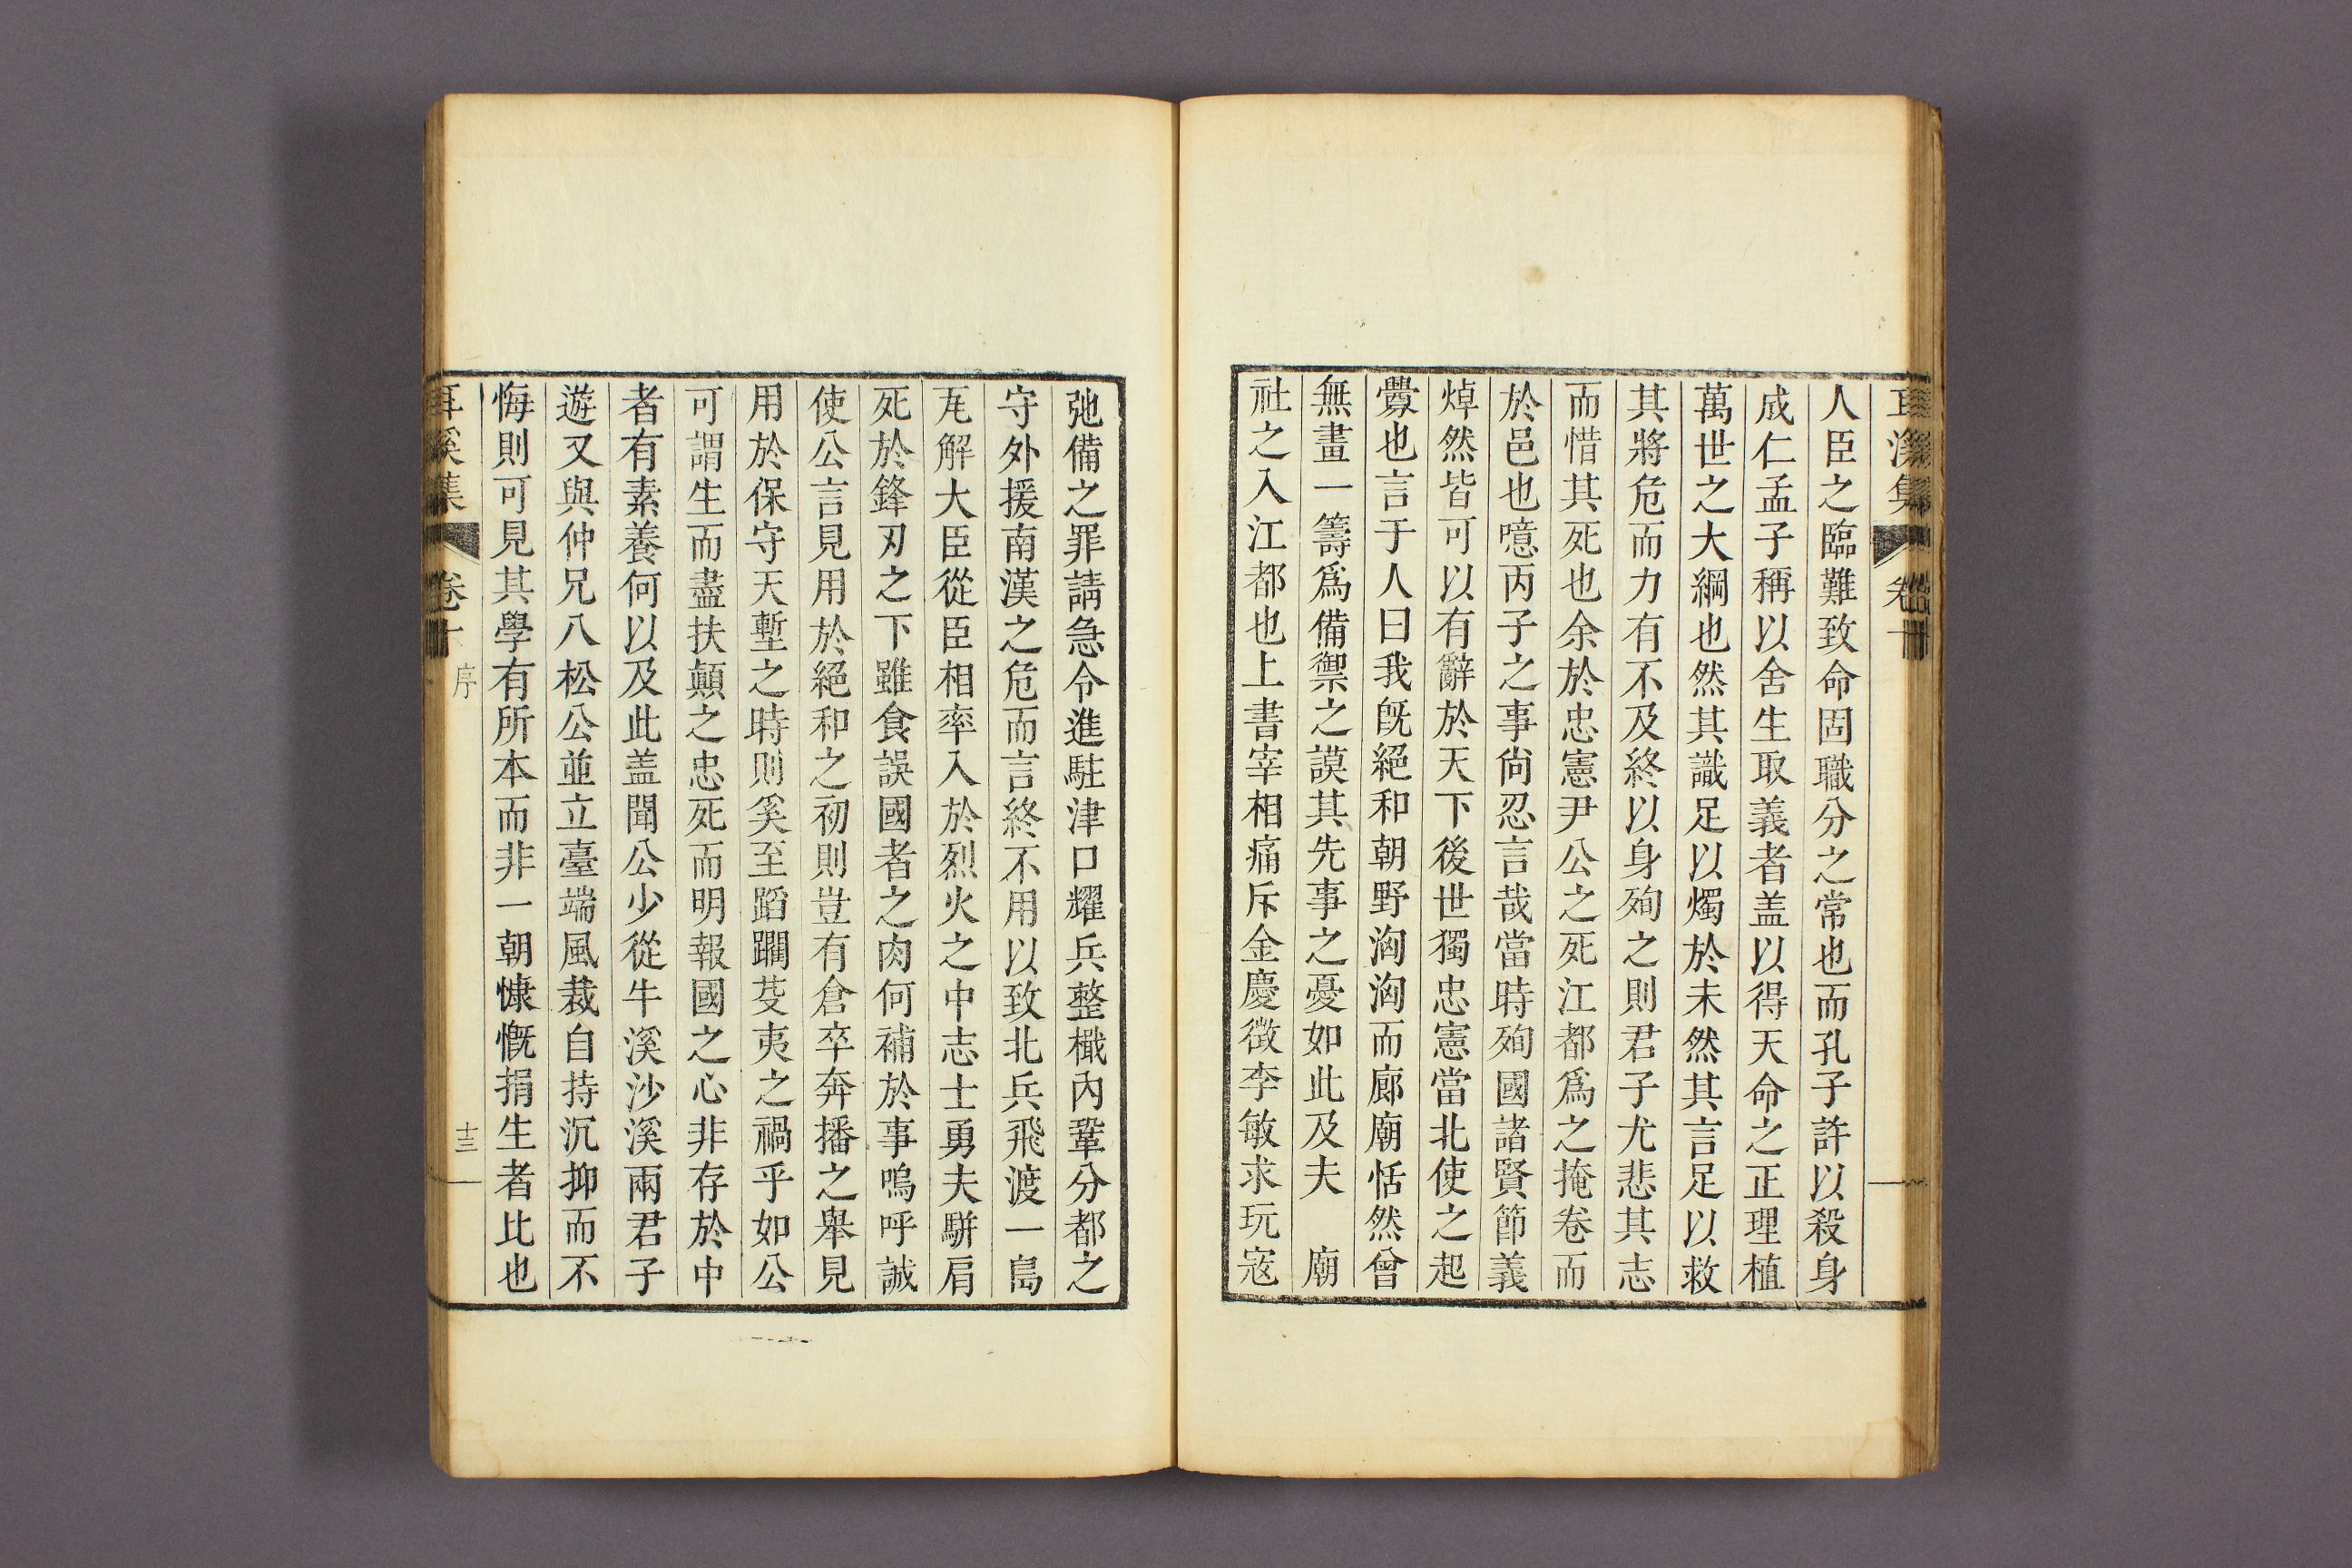 耳溪集 卷十
人臣之臨難致命固職分之常也而孔子許以殺身
成仁孟子稱以舍生取義者盖以得天命之正理植
萬世之大綱也然其識足以燭於未然其言足以救
其將危而力有不及終以身殉之則君子尤悲其志
而惜其死也余於忠憲尹公之死江都爲之掩卷而
於邑也噫丙子之事尙忍言哉當時殉國諸賢節義
焯然皆可以有辭於天下後世獨忠憲當北使之起
釁也言于人曰我旣絕和朝野洶洶而廊廟恬然曾
無畫一籌爲備禦之謨其先事之憂如此及夫 廟
社之入江都也上書宰相痛斥金慶徵李敏求玩寇
弛備之罪請急令進駐津口耀兵整檝內鞏分都之
守外援南漢之危而言終不用以致北兵飛渡一島
瓦解大臣從臣相率入於烈火之中志士勇夫騈肩
死於鋒刃之下雖食誤國者之肉何補於事嗚呼誠
使公言見用於絕和之初則豈有倉卒奔播之舉見
用於保守天塹之時則奚至蹈躙芟夷之禍乎如公
可謂生而盡扶顚之忠死而明報國之心非存於中
者有素養何以及此盖聞公少從牛溪沙溪兩君子
遊又與仲兄八松公並立臺端風裁自持沉抑而不
悔則可見其學有所本而非一朝慷慨捐生者比也
耳溪集 卷十 序 十三